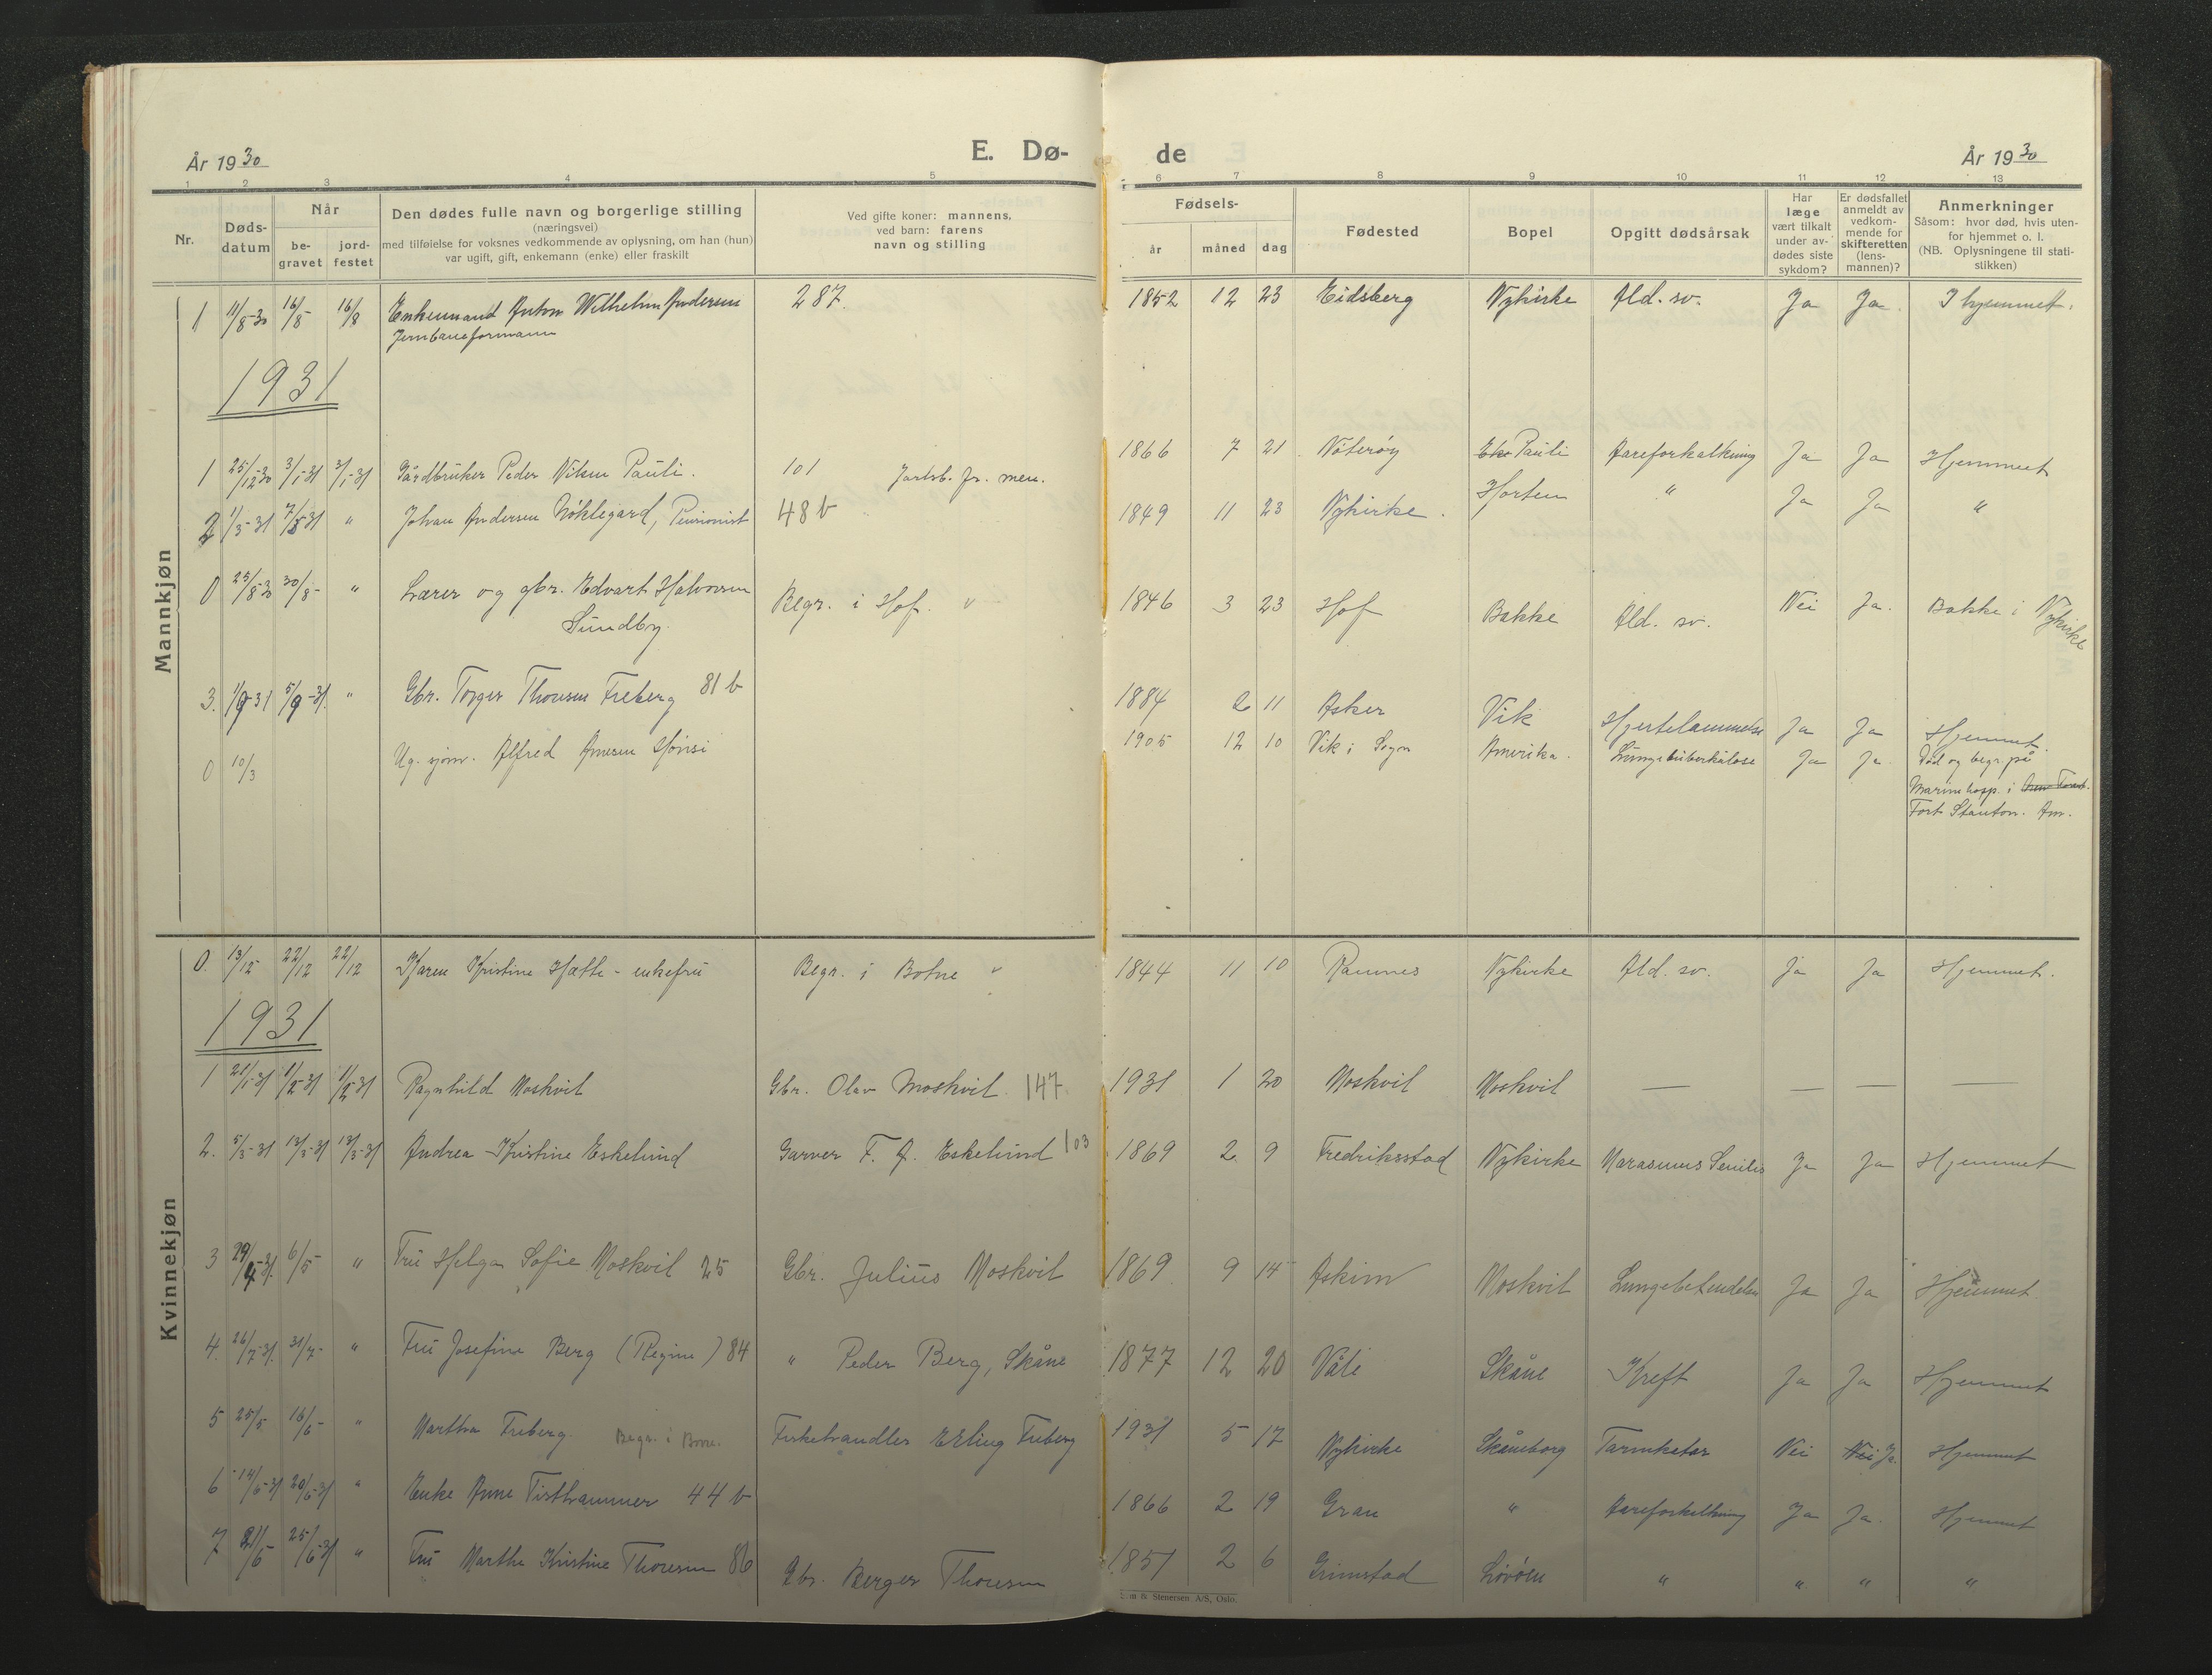 År 1930
E. Dø-
de
År 1930
1 2 3 4 5 6 7 8 9 10 11 12 13
Nr.
Døds-
datum
Når
be-
gravet
jord-
festet
Den dødes fulle navn og borgerlige stilling
(næringsvei)
med tilføielse for voksnes vedkommende av oplysning, om han (hun)
var ugift, gift, enkemann (enke) eller fraskilt
Ved gifte koner: mannens,
ved barn: farens
navn og stilling
Fødsels-
år måned dag
Fødested
Bopel
Opgitt dødsårsak
Har
læge
vært tilkalt
under av-
dødes siste
sykdom?
Er dødsfallet
anmeldt av
vedkom-
mende for
skifteretten
(lens-
mannen)?
Anmerkninger
Såsom: hvor død, hvis uten-
for hjemmet o. l.
(NB. Oplysningene til stati-
stikken)
Mannkjøn
1 11/8-30 16/8 16/8 Enkemand Anton Wilhelm Andersen 287. 1852 12 23 Eidsberg Nykirke Ald. sv. Ja Ja. I hjemmet.
Jernbaneformann
1931
1 25/12-30 3/1-31 3/1-31 Gårdbruker Peder Nilsen Pauli. 101 Jarlsb. fr. men. 1866 7 21 Nøterøy Eko Pauli Aareforkalkning Ja Ja Hjemmet
2 1/3-31 7/3-31 " Johan Andersen Nøklegard, Pensionist 48 b 1849 11 23 Nykirke. Horten " Ja Ja "
0 25/8-30 30/8- " Lærer og gbr. Edvart Halvorsen Begr. i Hof. " 1846 3 23 Hof Bakke Ald. sv. Nei Ja. Bakke i Nykirke
Sundby.
3. 1/9-31 5/9-31. " Gbr. Torger Thoresen Freberg 81 b 1884 2 11 Asker Vik Hjertelammelse Ja Ja Hjemmet.
0 10/3 Ug. sjøm. Alfred Arnesen Hønsi 1905 12 10 Vik i Sogn Amerika. Lungetuberkulose Ja Ja. Død og begr. på
Marinehosp. i
Fort Stanton. Am.
Kvinnekjøn
0. 13/12 22/12 22/12 Karen Kristine Hætte - enkefru Begr. i Botne " 1844 11 10 Ramnes Nykirke Ald. sv. Ja Ja Hjemmet.
1931
1 21/1-31 1/2-31 1/2-31 Ragnhild Moskvil Gbr. Olav Moskvil 147 1931 1 20 Moskvil Moskvil — — — —
2. 5/3-31 13/3-31 13/3-31 Andrea Kristine Eskelund Garver F. A. Eskelund 103 1869 2 9 Fredriksstad Nykirke Marasmus Senilis Ja Ja Hjemmet
3 29/4-31. 6/5- " Fru Helga Sofie Moskvil 25 Gbr. Julius Moskvil 1869 9 14 Askim Moskvil Lungebetendelse Ja Ja Hjemmet
4. 26/7-31. 31/7- " Fru Josefine Berg (Regine) 84 " Peder Berg, Skåne 1877 12 20 Våle Skåne Kreft Ja Ja Hjemmet
5 25/5 16/6- " Martha Freberg. Begr. i Borre. Fiskehandler Erling Freberg 1931 5 17 Nykirke Skåneborg Tarmkatar Nei Nei Ja Hjemmet
6 14/6-31 20/6-31 " Enke Anne Tisthammer 44 b 1866 2 19 Gran " Aareforkalkning Ja Ja. Hjemmet
7 21/6 25/6-31 " Fru Marthe Kristine Thoresen 86 Gbr. Berger Thoresen 1851 2 6 Grimstad Løvøen " " " "
& Stenersen A/S, Oslo.